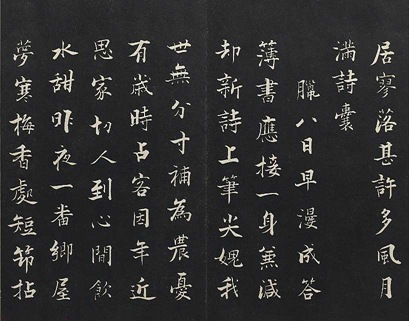 居寥落甚許多風月
滿詩囊
臘八日早漫成答
簿書應接一身兼減
却新詩上筆尖媿我
世無分寸補為農憂
有歲時占客因年近
思家切人到心閒飲
水甜昨夜一番鄉屋
夢寒梅香處短筇拈